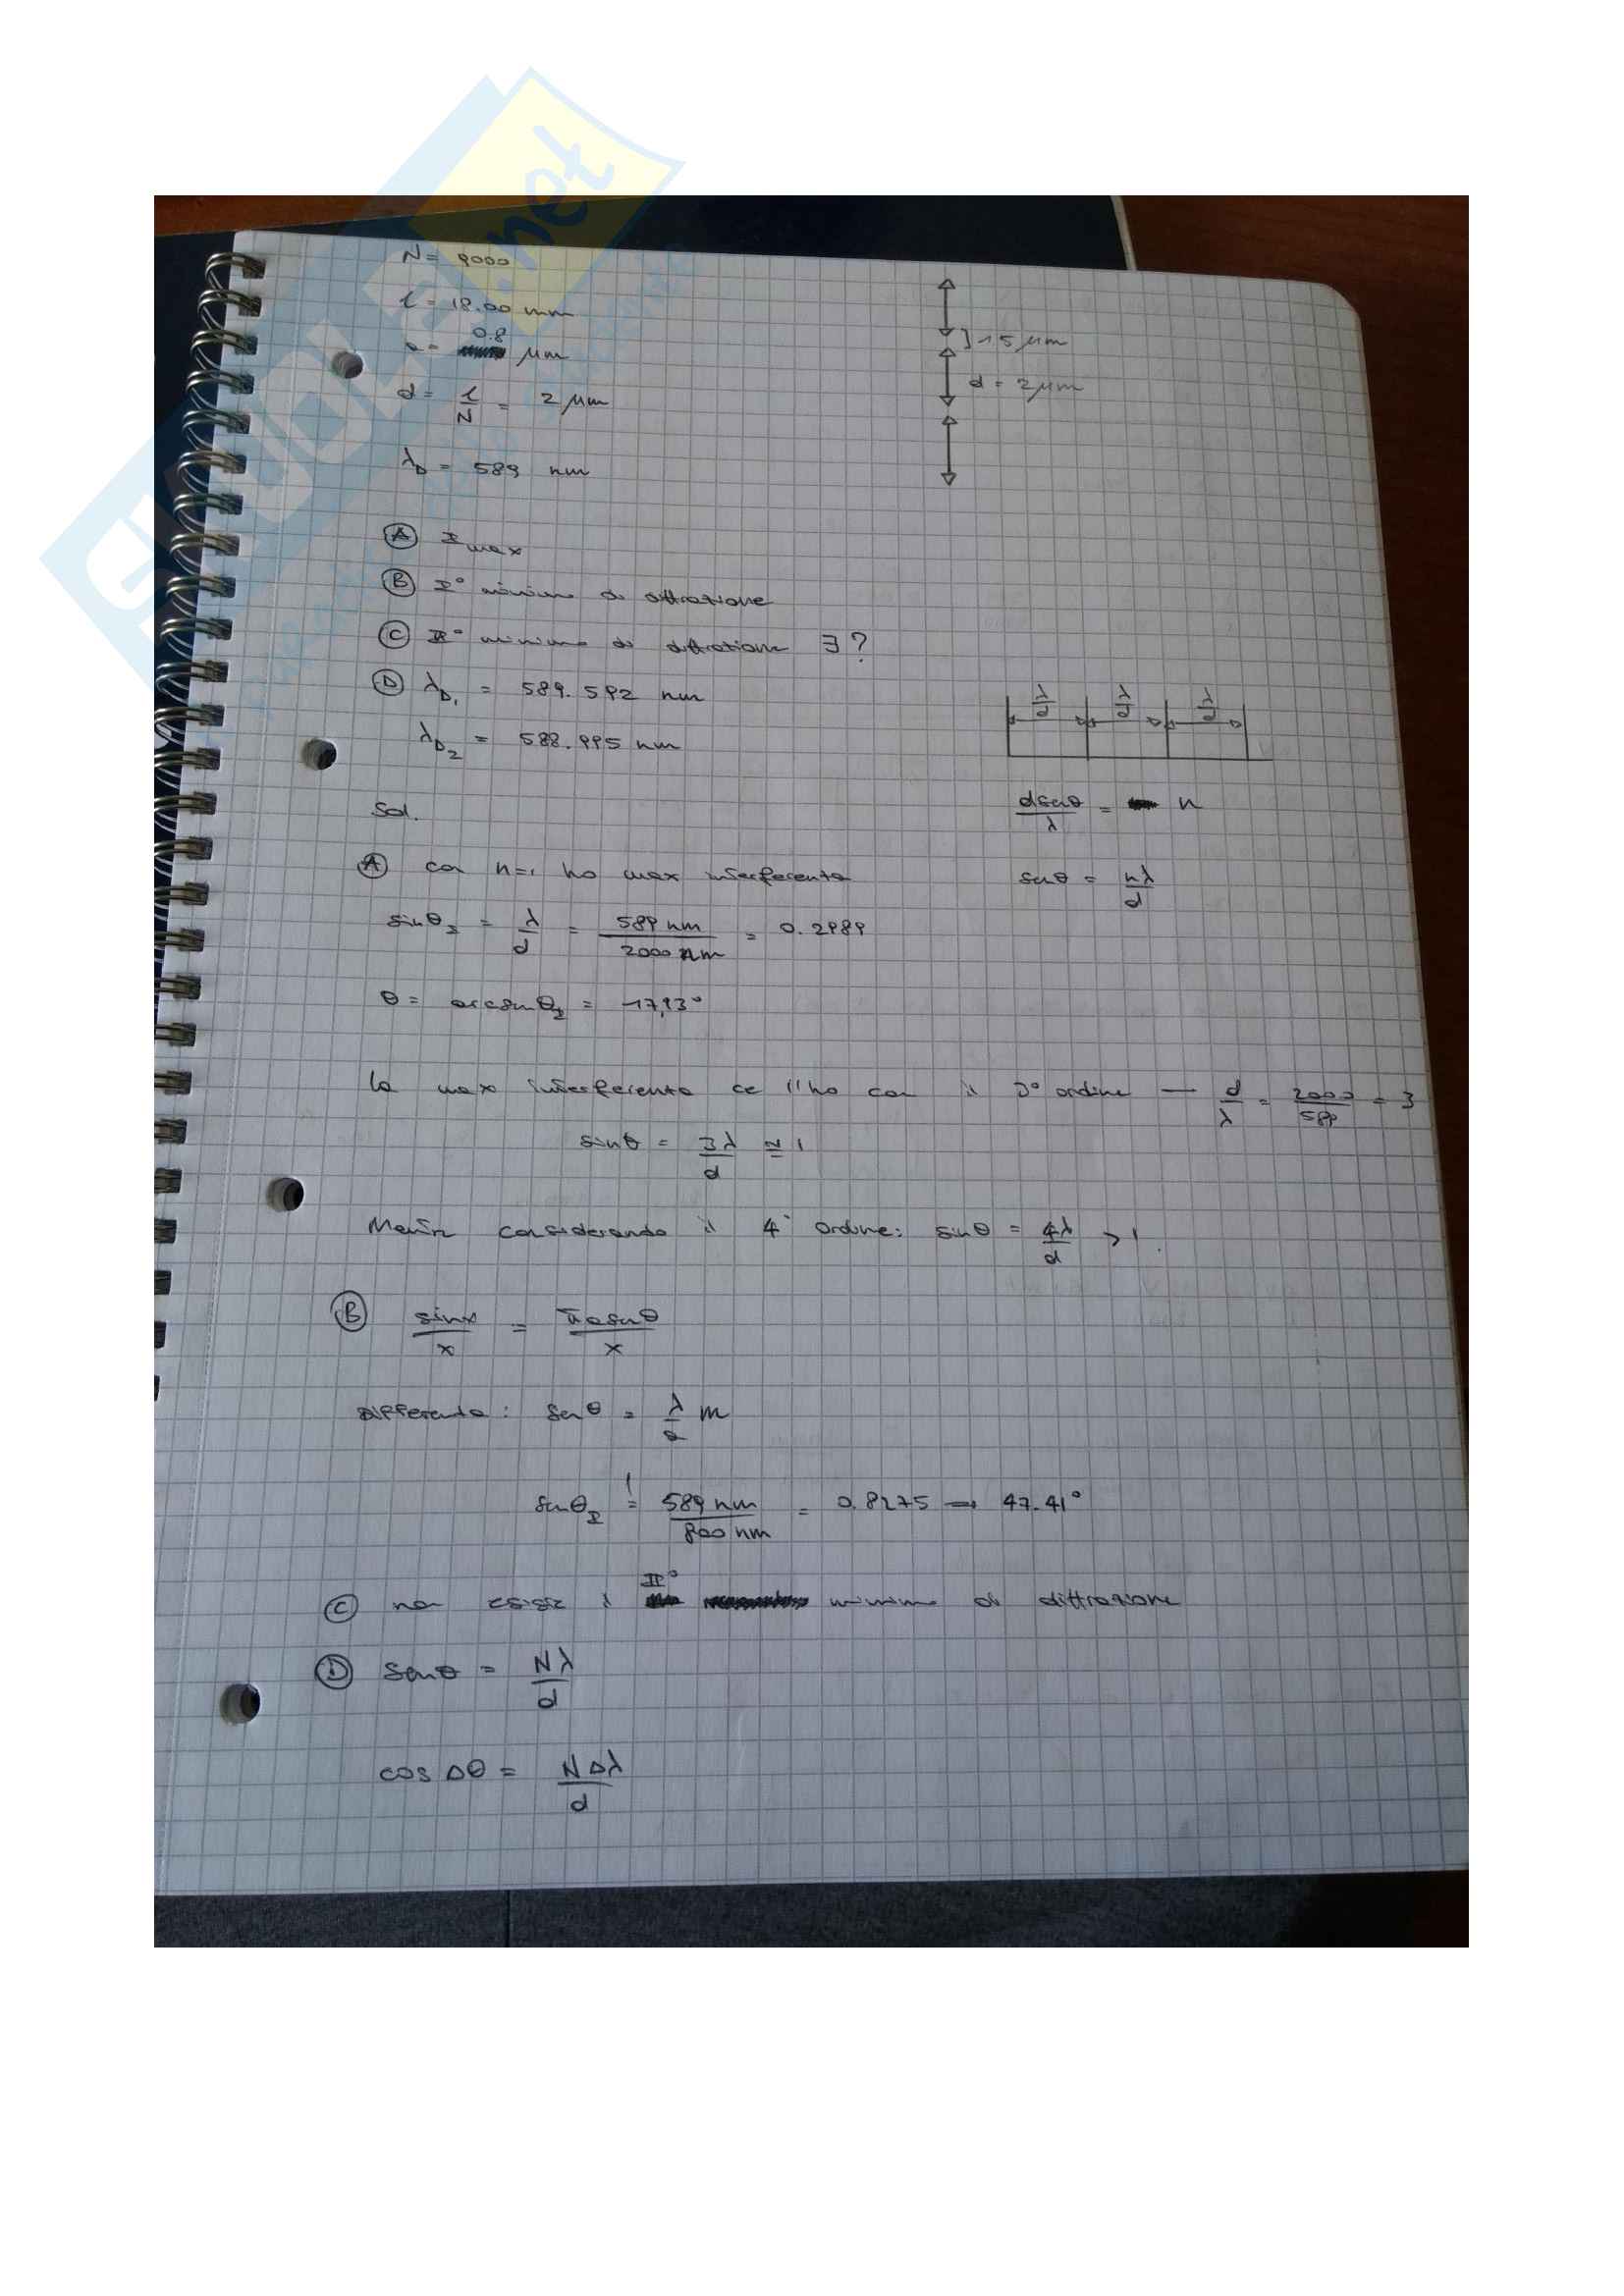 N = 9000
l = 18.00 mm
0.8
a = μm
d = l/N = 2 μm
λD = 589 nm
15 μm
d = 2 μm
Ⓐ I max
Ⓑ I° minimo di diffrazione
Ⓒ II° minimo di diffrazione ∃?
Ⓓ λD1 = 589.592 nm
λD2 = 588.995 nm
λ/d λ/d λ/d
d senθ/λ = n
senθ = nλ/d
Sol.
Ⓐ con n=1 ho max interferenza
sinθI = λ/d = 589 nm/2000 nm = 0.2989
θ = arcsenθI = 17,13°
la max interferenza ce l'ho con il 3° ordine — d/λ = 2000/589 = 3
sinθ = 3λ/d ≅ 1
Mentre considerando il 4° ordine: sinθ = 4λ/d > 1.
Ⓑ sinx/x = πasenθ/x
Differenza: senθ = λ/a m
senθI = 589 nm/800 nm = 0.8275 → 47.41°
Ⓒ non esiste il II° minimo di diffrazione
Ⓓ senθ = Nλ/d
cos Δθ = NΔλ/d